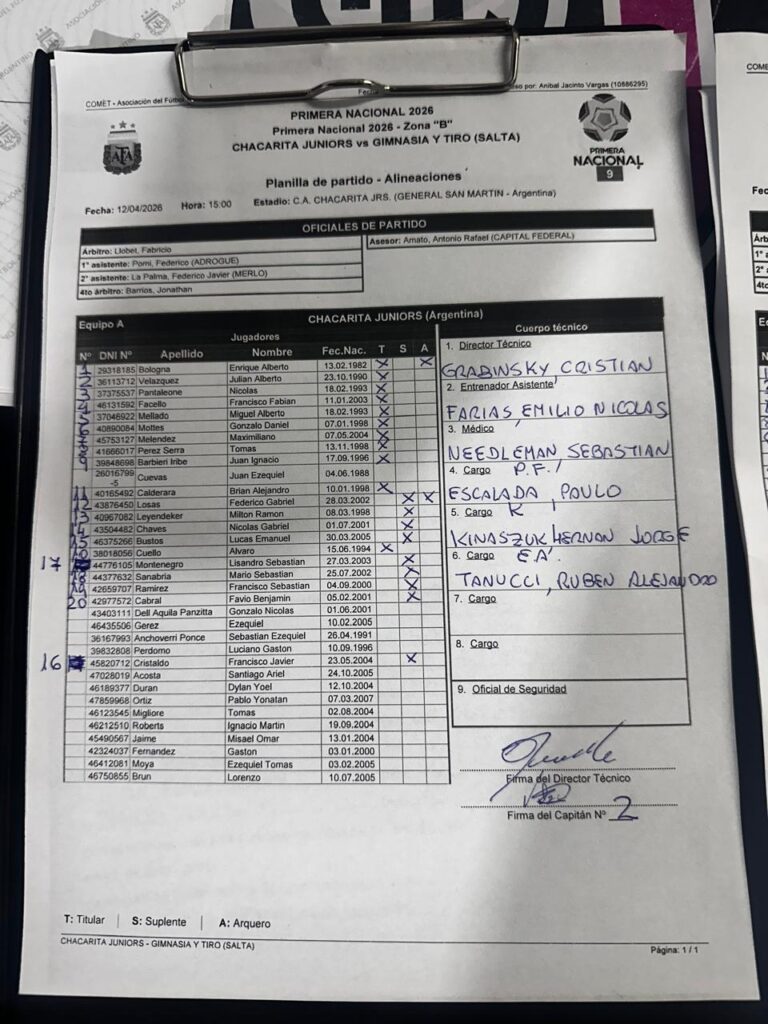 COMET - Asociación del Fútbol
Anibal Jacinto Vargas (10886295)
PRIMERA NACIONAL 2026
Primera Nacional 2026 - Zona "B"
CHACARITA JUNIORS vs GIMNASIA Y TIRO (SALTA)
AFA
PRIMERA
NACIONAL
9
Planilla de partido - Alineaciones
Fecha: 12/04/2026 Hora: 15:00 Estadio: C.A. CHACARITA JRS. (GENERAL SAN MARTIN - Argentina)
OFICIALES DE PARTIDO
Árbitro: Llobet, Fabricio
Asesor: Amato, Antonio Rafael (CAPITAL FEDERAL)
1° asistente: Pomi, Federico (ADROGUE)
2° asistente: La Palma, Federico Javier (MERLO)
4to árbitro: Barrios, Jonathan
Equipo A CHACARITA JUNIORS (Argentina)
Jugadores
Nº DNI Nº Apellido Nombre Fec.Nac. T S A
1 29318185 Bologna Enrique Alberto 13.02.1982 X X
2 36113712 Velazquez Julian Alberto 23.10.1990 X
3 37375537 Pantaleone Nicolas 18.02.1993 X
4 46131592 Facello Francisco Fabian 11.01.2003 X
37046922 Mellado Miguel Alberto 18.02.1993 X
40890084 Mottes Gonzalo Daniel 07.01.1998 X
45753127 Melendez Maximiliano 07.05.2004 X
41666017 Perez Serra Tomas 13.11.1998 X
9 39848698 Barbieri Iribe Juan Ignacio 17.09.1996 X
26016799-5 Cuevas Juan Ezequiel 04.06.1988
11 40165492 Calderara Brian Alejandro 10.01.1998 X
12 43876450 Losas Federico Gabriel 28.03.2002 X X
13 40967082 Leyendeker Milton Ramon 08.03.1998 X
14 43504482 Chaves Nicolas Gabriel 01.07.2001 X
15 46375266 Bustos Lucas Emanuel 30.03.2005 X
10 38018056 Cuello Alvaro 15.06.1994 X
17 44776105 Montenegro Lisandro Sebastian 27.03.2003 X
18 44377632 Sanabria Mario Sebastian 25.07.2002 X
19 42659707 Ramirez Francisco Sebastian 04.09.2000 X
20 42977572 Cabral Favio Benjamin 05.02.2001 X
43403111 Dell Aquila Panzitta Gonzalo Nicolas 01.06.2001
46435506 Gerez Ezequiel 10.02.2005
36167993 Anchoverri Ponce Sebastian Ezequiel 26.04.1991
39832808 Perdomo Luciano Gaston 10.09.1996
16 45820712 Cristaldo Francisco Javier 23.05.2004 X
47028019 Acosta Santiago Ariel 24.10.2005
46189377 Duran Dylan Yoel 12.10.2004
47859968 Ortiz Pablo Yonatan 07.03.2007
46123545 Migliore Tomas 02.08.2004
46212510 Roberts Ignacio Martin 19.09.2004
45490567 Jaime Misael Omar 13.01.2004
42324037 Fernandez Gaston 03.01.2000
46412081 Moya Ezequiel Tomas 03.02.2005
46750855 Brun Lorenzo 10.07.2005
Cuerpo técnico
1. Director Técnico
GRABINSKY, CRISTIAN
2. Entrenador Asistente
FARIAS, EMILIO NICOLAS
3. Médico
NEEDLEMAN, SEBASTIAN
4. Cargo P.F.
ESCALADA, PAULO
5. Cargo K
KINASZUK HERNAN JORGE
6. Cargo E.A.
TANUCCI, RUBEN ALEJANDRO
7. Cargo
8. Cargo
9. Oficial de Seguridad
Firma del Director Técnico
Firma del Capitán Nº 2
T: Titular | S: Suplente | A: Arquero
CHACARITA JUNIORS - GIMNASIA Y TIRO (SALTA)
Página: 1 / 1